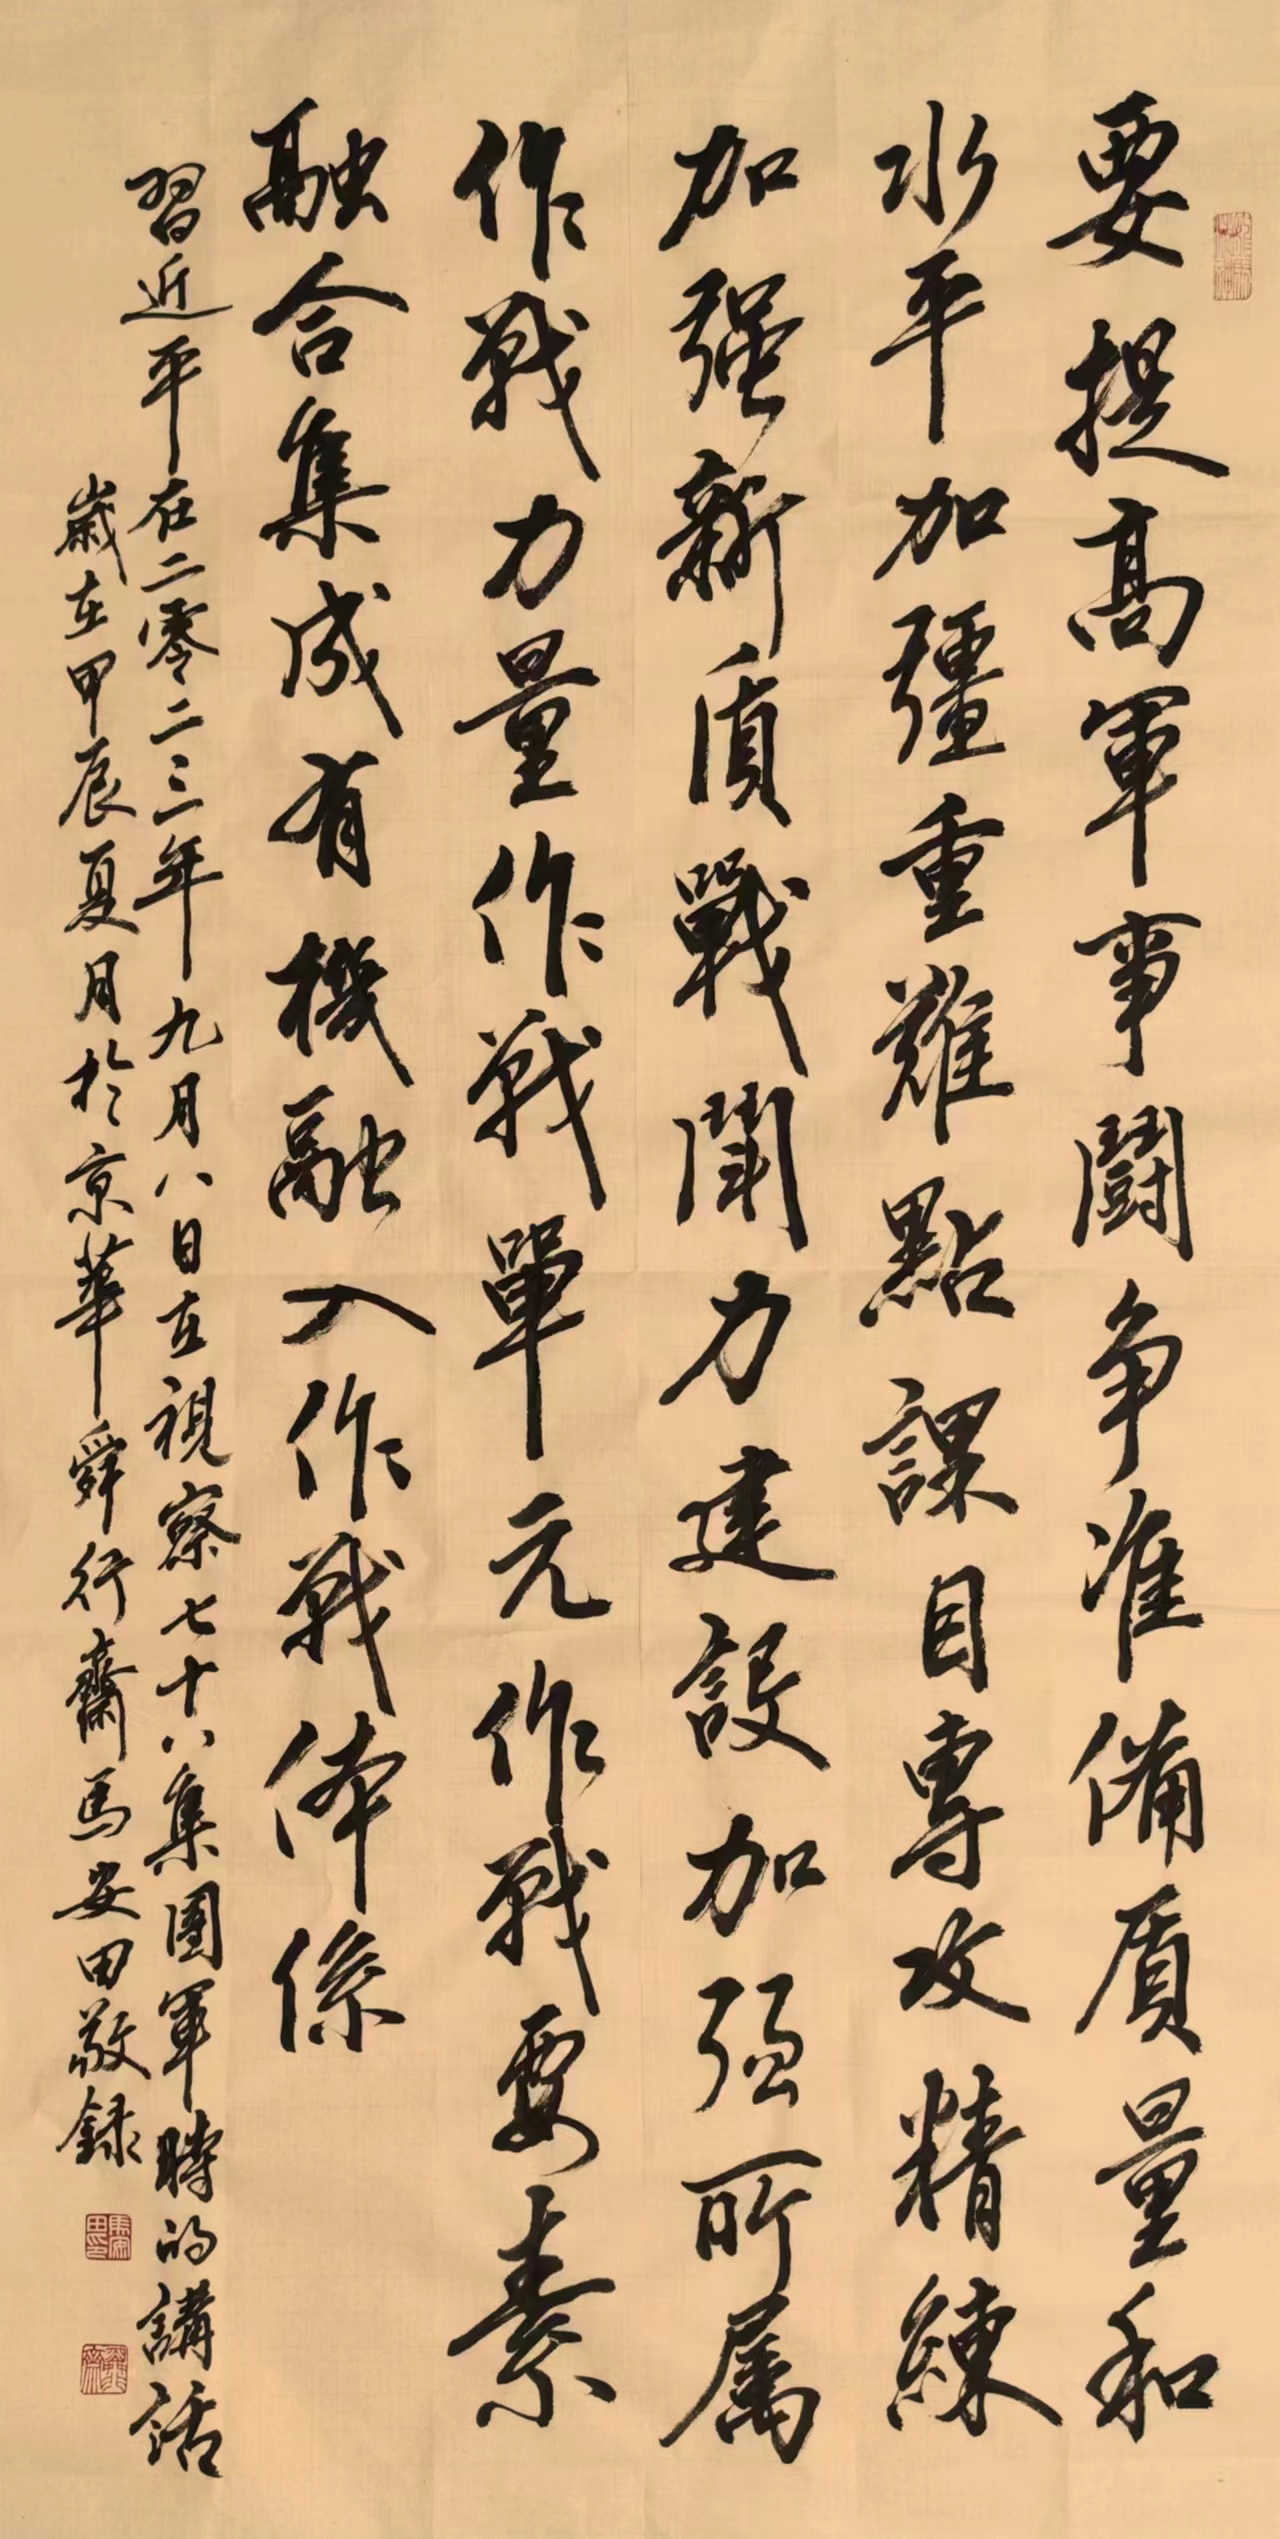 要提高軍事鬪争准備质量和
水平加疆重難點課目專攻精練
加强新质戰鬪力建設加强所属
作戰力量作戰單元作戰要素
融合集成有機融入作戰体係
習近平在二零二三年九月八日在視察七十八集團軍時的講話
歲在甲辰夏月於京華舜行齋馬安田敬録
馬安田印